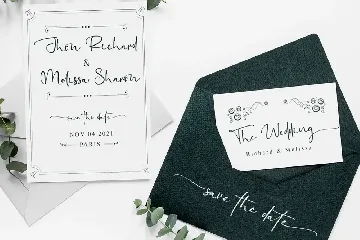 Jhon Richard
&
Melissa Sharon
save the date
NOV 04 2021
PARIS
The Wedding
Richard & Melissa
save the date